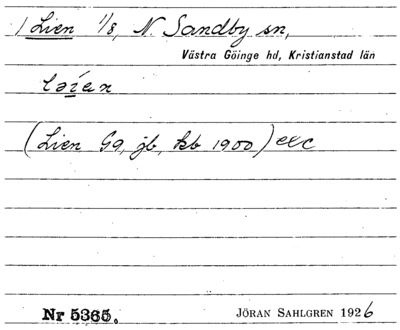 1 Lien 1/8, N. Sandby sn,
Västra Göinge hd, Kristianstad län
ləíen
(Lien G9, jb, kb 1900) exc
Nr 5365. JÖRAN SAHLGREN 1926